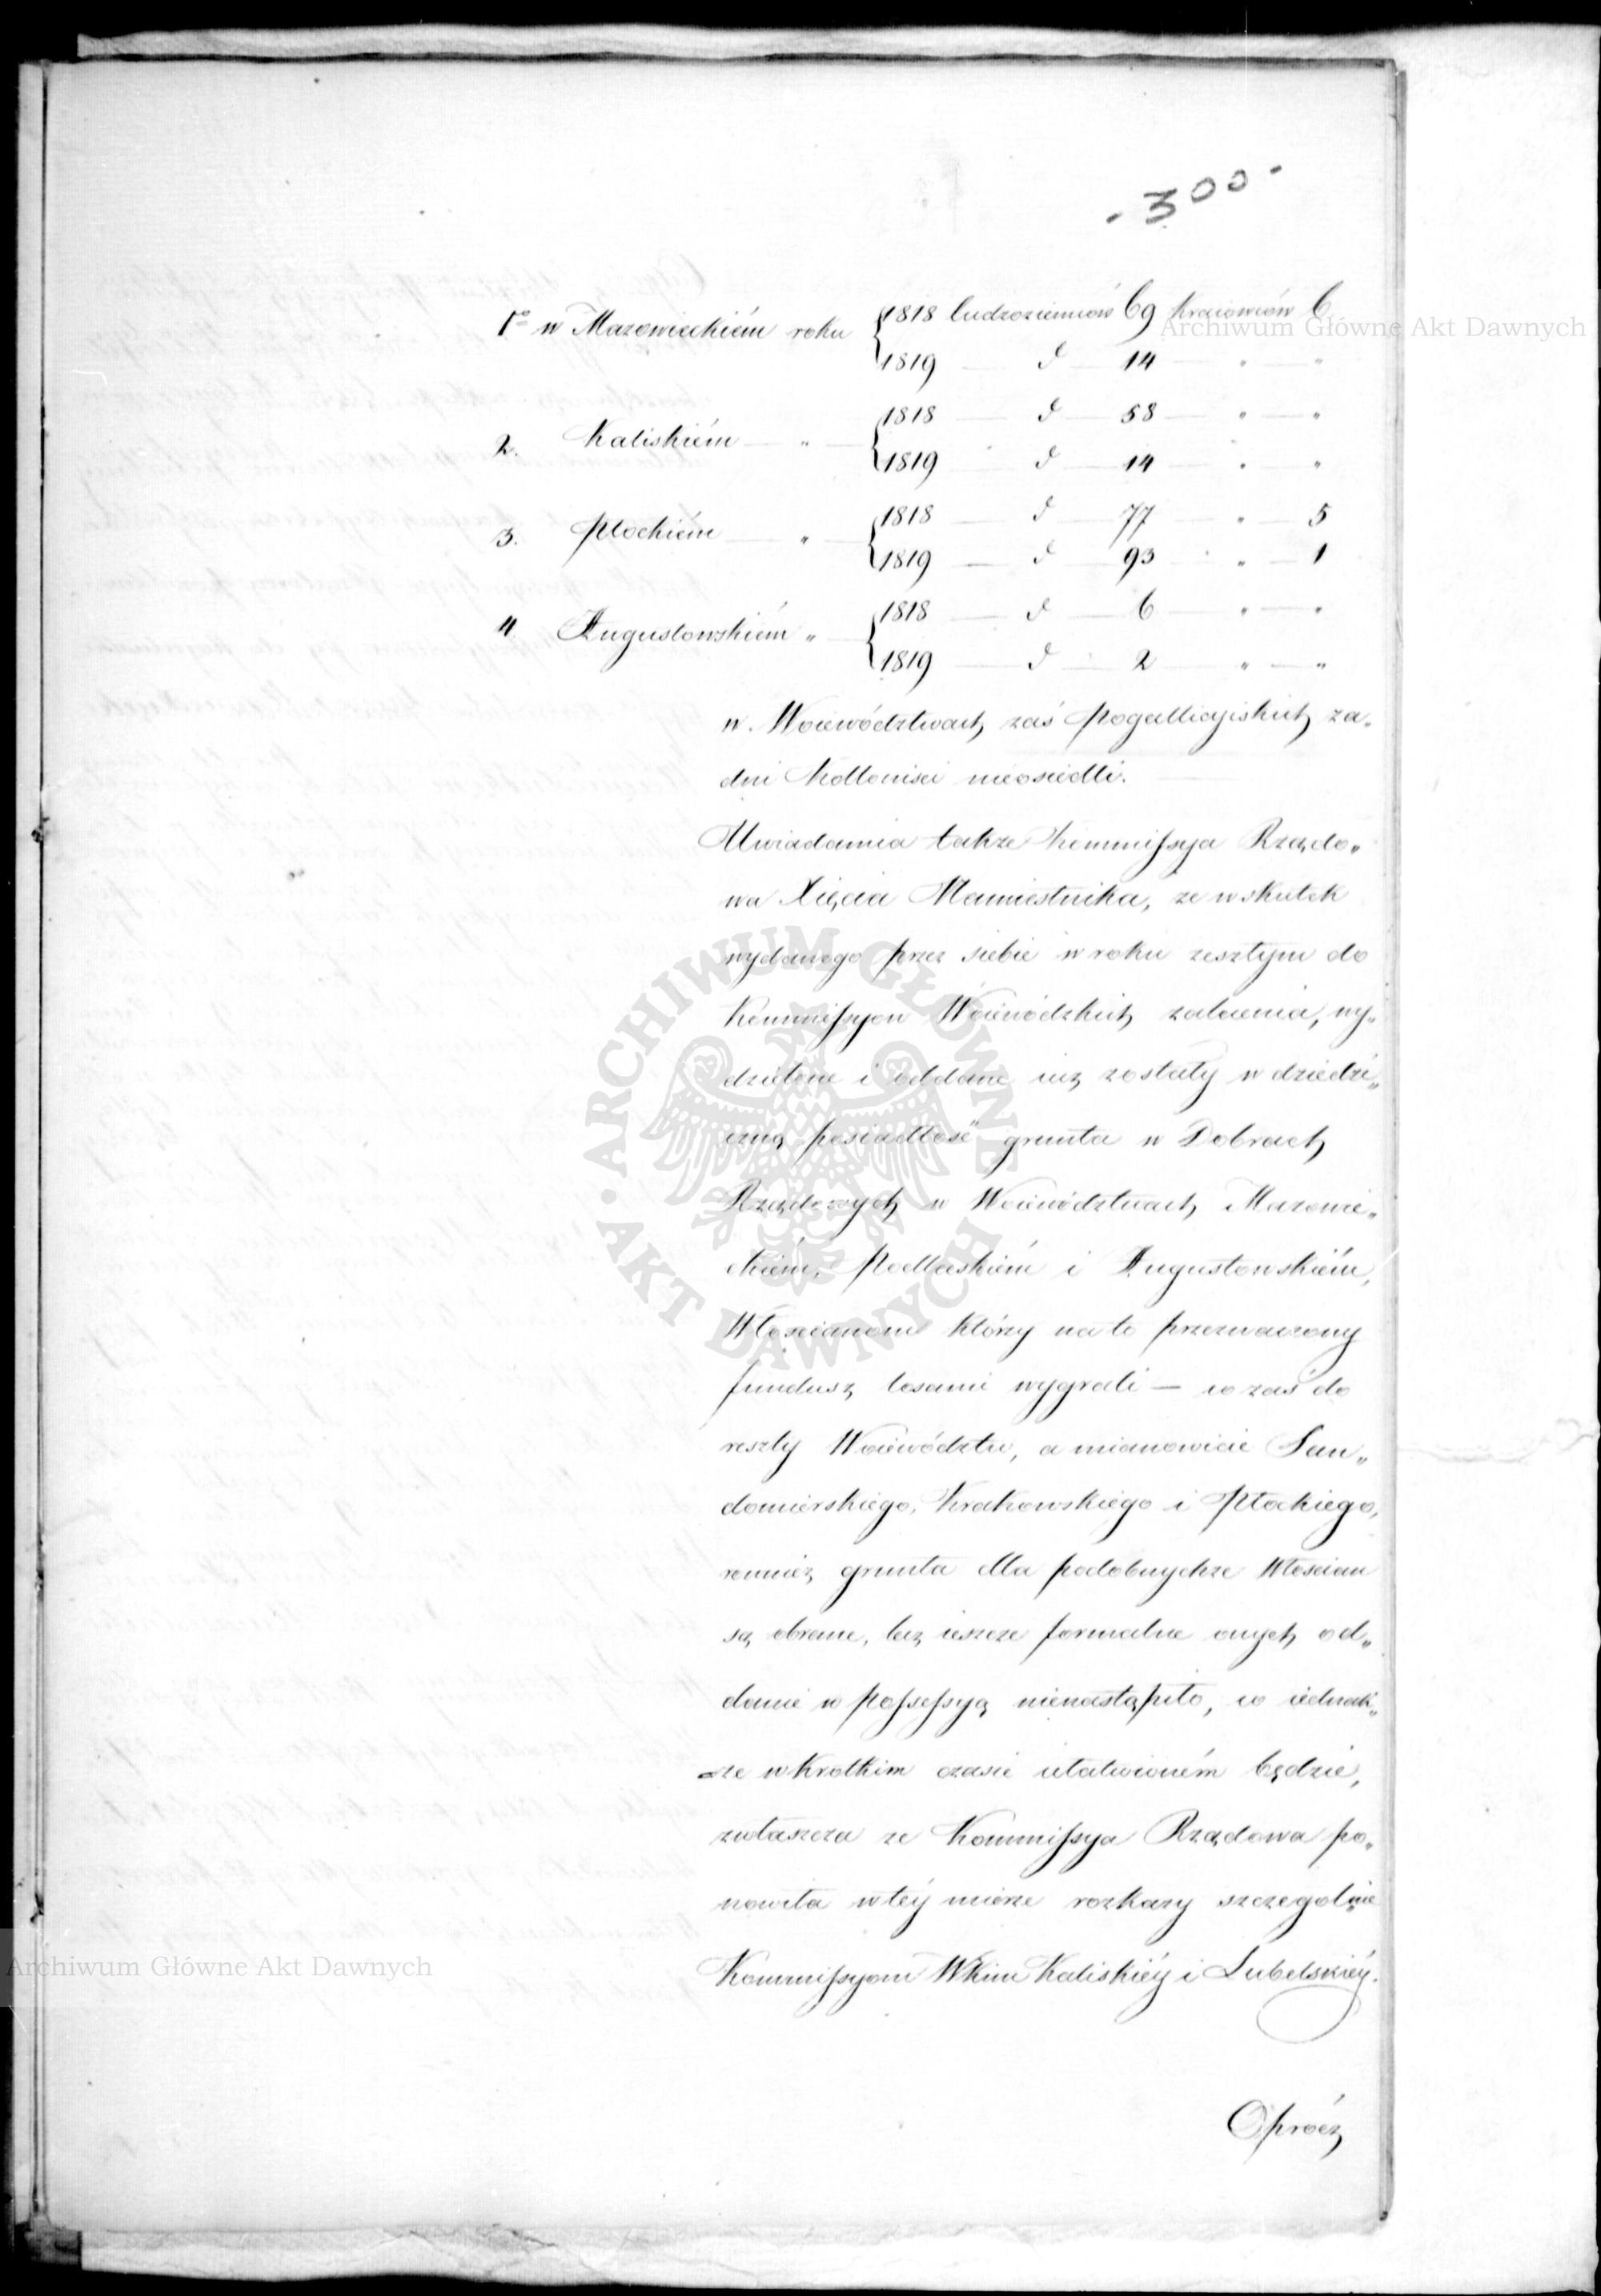 - 300 -
1º w Mazowieckiém roku { 1818 Cudzoziemców 69 Kraiowców 6
1819 — d — 14 — " — "
2. Kaliskiém — " — { 1818 — d — 58 — " — "
1819 — d — 14 — " — "
3. Płockiém — " — { 1818 — d — 77 — " — 5
1819 — d — 93 — " — 1
4 Augustowskiém " — { 1818 — d — 6 — " — "
1819 — d — 2 — " — "
w Woiewództwach zaś Pogallicyiskich ża„
dni Kolloniści nieosiedli.
Uwiadamia także Kommissya Rządo„
wa Xięcia Namiestnika, że w skutek
wydanego przez siebie w roku zeszłym do
Kommissyon Woiewódzkich zalecenia, wy„
dzielone i oddane iuż zostały w dziedzi„
czną posiadłość grunta w Dobrach
Rządowych w Woiewództwach Mazowie„
ckiém, Podlaskiém i Augustowskiém,
Włoscianom którzy na to przeznaczony
fundusz losami wygrali — co zaś do
reszty Woiewództw, a mianowicie San„
domierskiego, Krakowskiego i Płockiego,
rownież grunta dla podobnychże Włoscian
są obrane, lecz ieszcze formalne onych od„
danie w possessyą nienastąpiło, co iednak„
że w krotkim czasie ułatwioném będzie,
zwłaszcza że Kommissya Rządowa po„
nowiła w téy mierze rozkazy szczegolnie
Kommissyom Wkim Kaliskiéy i Lubelskiéy.
Oprócz
Archiwum Główne Akt Dawnych
ARCHIWUM GŁÓWNE AKT DAWNYCH
Archiwum Główne Akt Dawnych